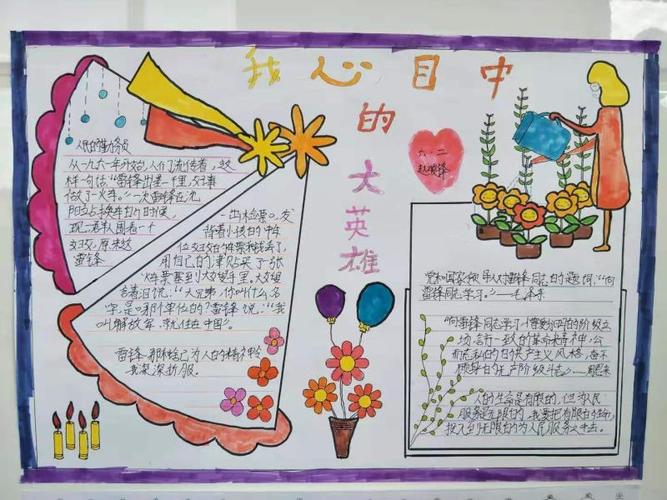 我心目中
的
大英雄
六·二
人民的勤务员
从一九六一年开始,人们流传着,这
样一句话:"雷锋出差一千里,好事
做了一火车。"一次雷锋在沈
阳站换车的时候,
现一群人围着一个
妇女,原来她
雷锋
一出检票口,发
背着小孩的中年
位妇女的车票和钱丢了,
用自己的津贴买了一张
火车票塞到大嫂手里,大嫂
含着泪说:"大兄弟,你叫什么名
字,是哪个单位的?"雷锋说:"我
叫解放军,就住在中国。"
雷锋那种舍己为人的精神令
我深深折服。
党和国家领导人对雷锋同志的题词:"向
雷锋同志学习。"——毛泽东
"向雷锋同志学习憎爱分明的阶级立
场,言行一致的革命精神,公
而忘私的共产主义风格,奋不
顾身的无产阶级斗志。——周恩来
人的生命是有限的,但为人民
服务是无限的,我要把有限的生命
投入到无限的为人民服务之中去。